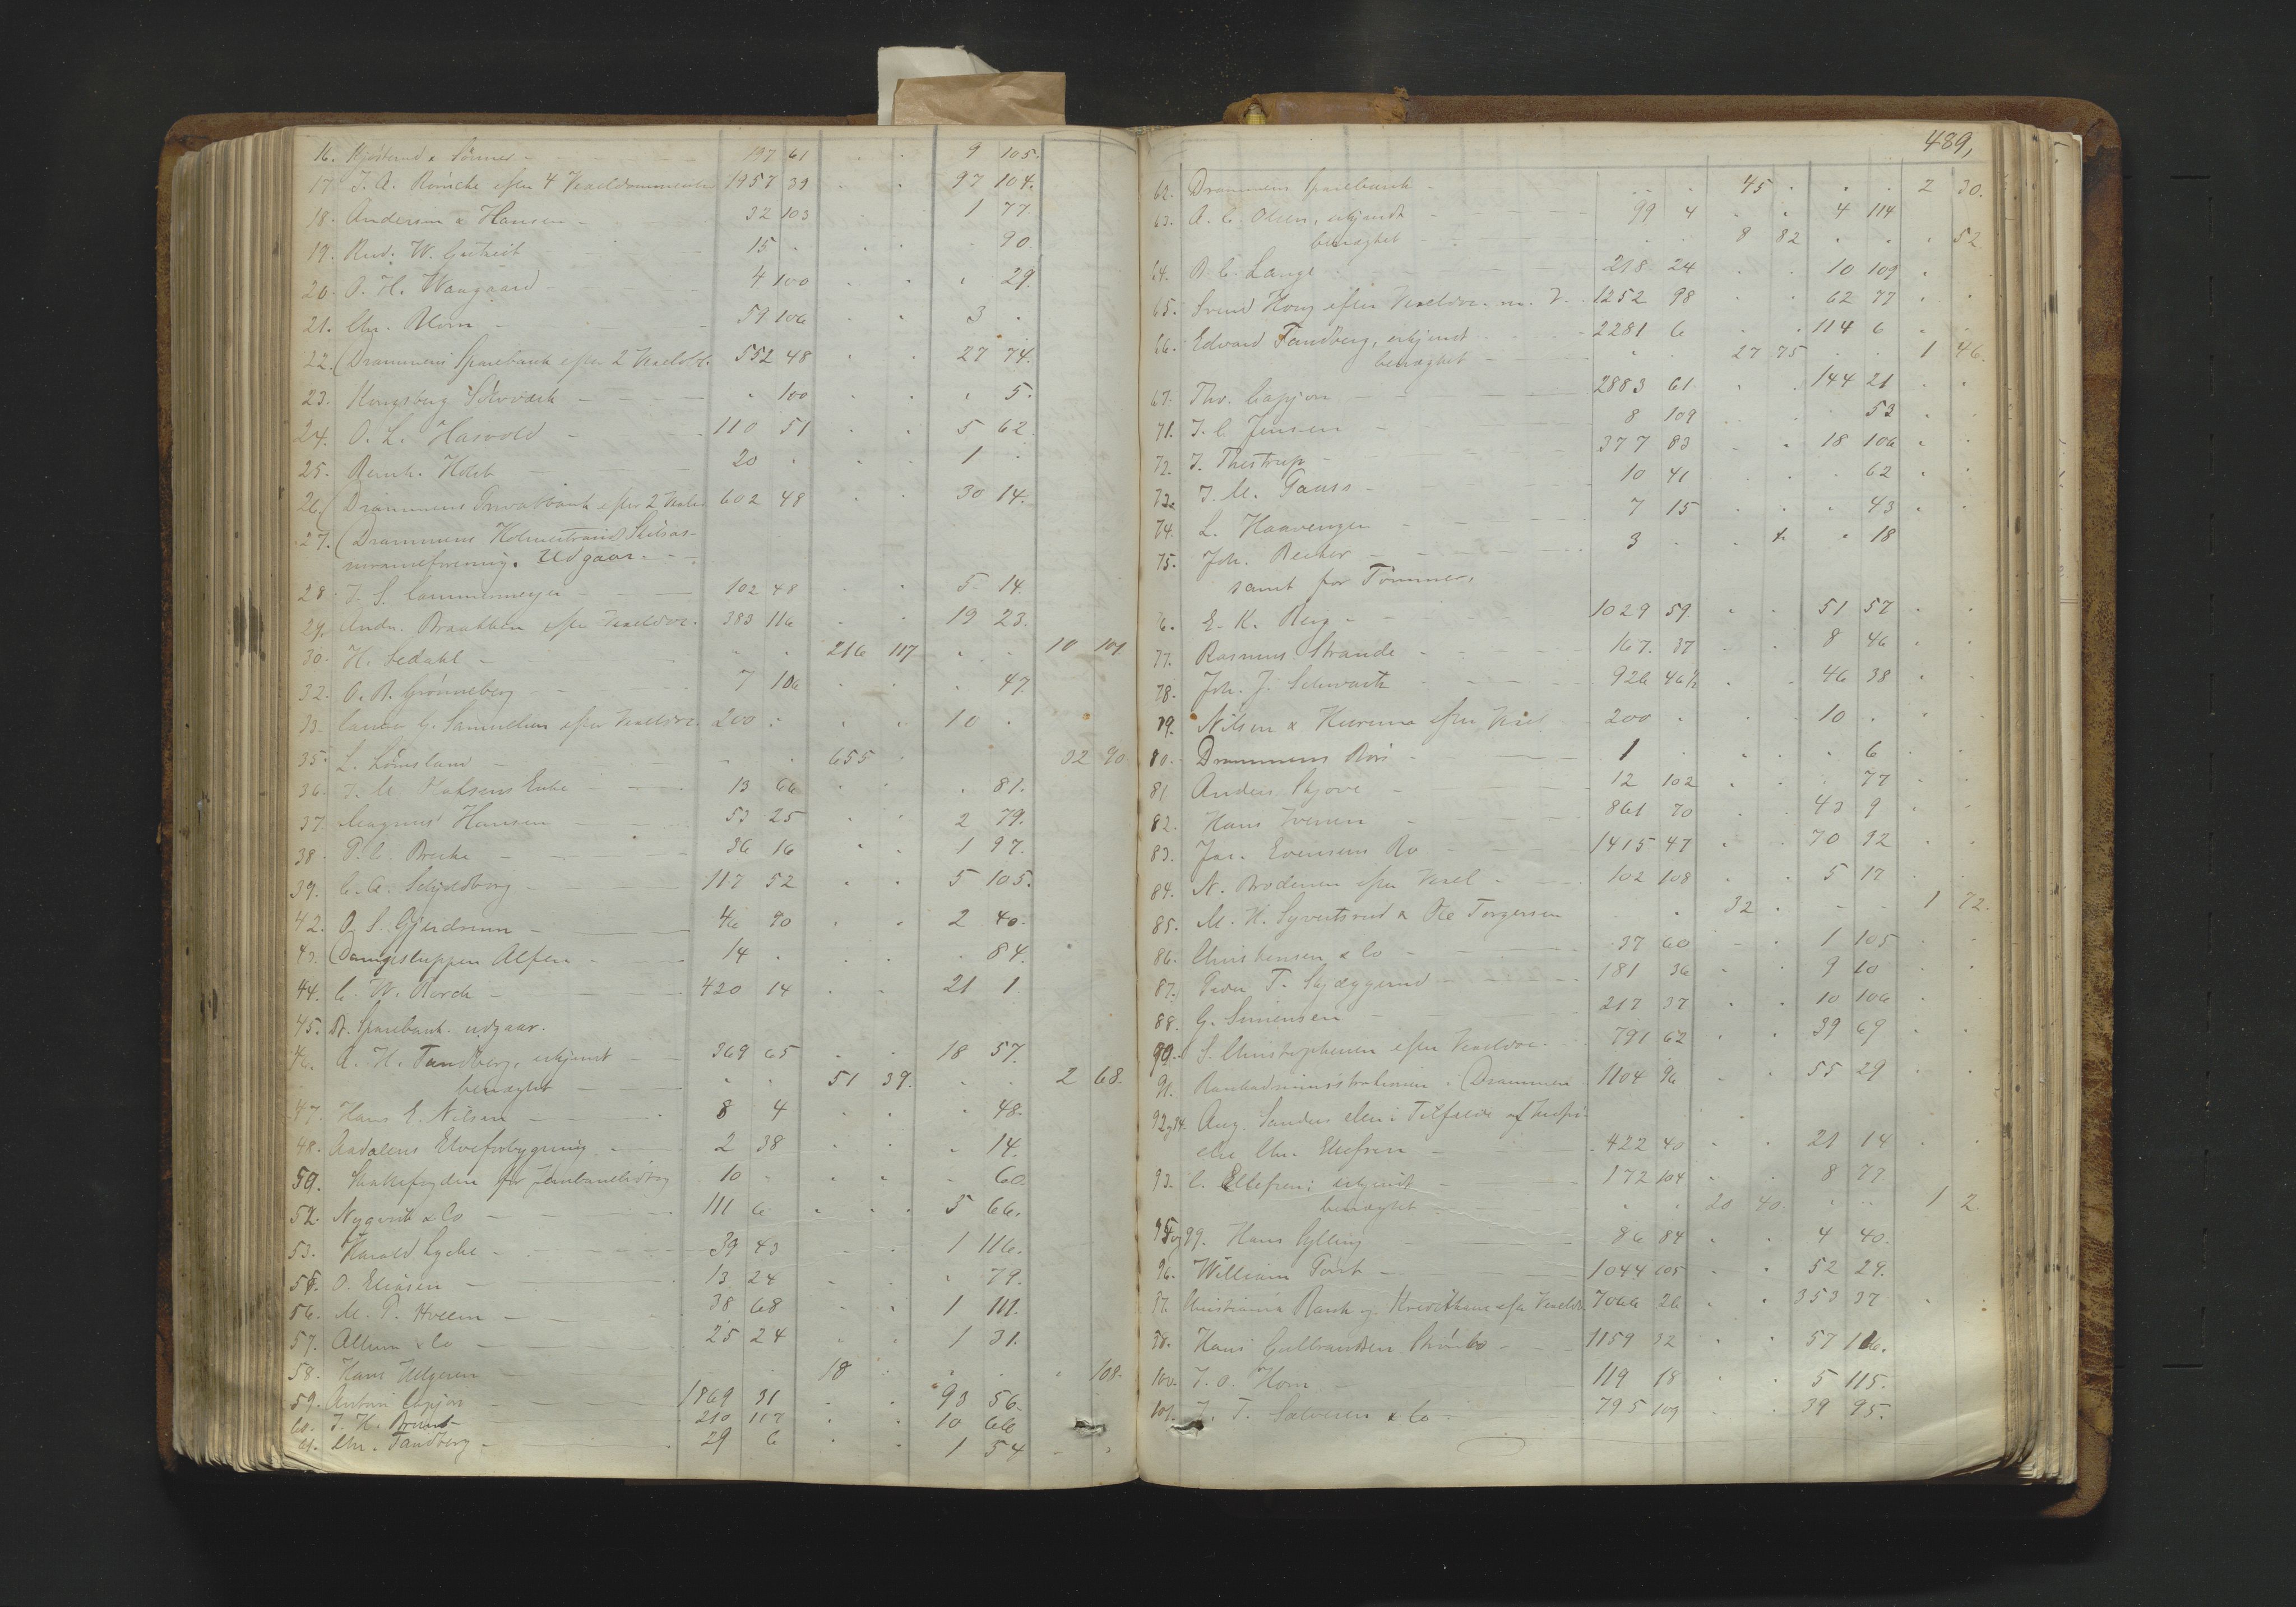 16. & Sønner - 197 61 . . 9 105.
17. J. A. efter 4 1957 39 . . 97 104.
18. Andersen & Hansen - 32 103 . . 1 77.
19. Rud. W. 15 . . . . 90.
20. O. H. Waagaard - 4 100 . . . 29.
21. Chr. Blom - 59 106 . . 3 .
22. Drammens Sparebank efter 2 552 48 . . 27 74.
23. Kongsberg Sølvværk - . 100 . . . 5.
24. O. L. Hasvold - 110 51 . . 5 62.
25. Bernh. Holst - 20 . . . 1 .
26. Drammens Privatbank efter 2 602 48 . . 30 14.
27. Drammens Holmestrands Skibsas-
suranceforening. Udgaar. -
28. J. S. Cammermeyer - 102 48 . . 5 14.
29. Andr. Braathen efter Vexelobl. 383 116 . . 19 23.
30. H. Sedahl - . . 216 117 . . 10 101
32. O. B. Grønneberg - 7 106 . . . 47.
33. G. Samuelsen efter 200 . . . 10 .
35. L. - . . 655 . . . 32 90
36. J. M. Enke - 13 66 . . . 81.
37. Magnus Hansen - 53 25 . . 2 79.
38. P. C. - 36 16 . . 1 97.
39. C. A. - 117 52 . . 5 105.
42. O. S. Gjerdrum - 46 90 . . 2 40.
43. Alfen - 14 . . . . 84.
44. C. W. Borch - 420 14 . . 21 1.
45. D. Sparebank udgaar.
46. A. H. Tandberg, erkjendt - 369 65 . . 18 57.
benægtet - . . 51 39. . . 2 68.
47. Hans E. Nilsen - 8 4 . . . 48.
48. Aadalens Elveforbygning - 2 38 . . . 14.
50. for 10 . . . . 60
52. Nygvist & Co - 111 6 . . 5 66.
53. Harald Lyche - 39 43 . . 1 116.
55. O. Eliasen - 13 24 . . . 79.
56. M. P. Hveem - 38 68 . . 1 111.
57. Allum & Co - 25 24 . . 1 31.
58. Hans Helgesen - . . 18 . . . . 108.
59. Anton - 1869 31 . . 93 56.
60. J. H. 210 117 . . 10 66
61. Chr. Tandberg - 29 6 . . 1 54
489,
62. Drammens Sparebank - . . 45 . . . 2 30.
63. A. C. Olsen, erkjendt - 99 4 . . 4 114
benægtet - . . 8 82 . . . 52
64. B. C. Lange - 218 24 . . 10 109 .
65. Svend Houg efter 1252 98 . . 62 77 . .
66. Edvard Tandberg, erkjendt - 2281 6 . . 114 6 . .
benægtet - . . 27 75 . . 1 46.
67. Tho. - 2883 61 . . 144 21 . .
71. J. C. Jensen - 8 109 . . . 53 . .
72. J. Thestrup - 377 83 . . 18 106 . .
73. J. M. Gauss - 10 41 . . . 62 . .
74. L. Haavengen - 7 15 . . . 43 . .
75. Joh. Becker - 3 . . . . 18
samt for Tømmer.
76. E. K. Berg - 1029 59 . . 51 57 . .
77. Rasmus Strande - 167 37 . . 8 46 . .
78. Joh. J. Schwartz - 926 46½ . . 46 38 . .
79. Nilsen & efter 200 . . . 10 . . .
80. Drammens Børs - 1 . . . . 6 . .
81 Anders Skjøve - 12 102 . . . 77 . .
82. Hans Iversen - 861 70 . . 43 9 . .
83. Jac. Evensens Bo - 1415 47 . . 70 92 . .
84. N. efter Vexel - 102 108 . . 5 17 . .
85. M. H. Syvertsrud & Ole Torgersen . . 32 . . . 1 72.
86. Christensen & Co - 37 60 . . 1 105 . .
87. Peder T. Skjæggerud - 181 36 . . 9 10 . .
88. G. Simensen - 217 37 . . 10 106 . .
90. S. Christophersen efter Vexelobl. 791 62 . . 39 69 . .
91. Bankadministrationen i Drammen 1104 96 . . 55 29 . .
92 og 94. Aug. Sanders eller i Tilfælde af
eller Chr. Ellefsen - 422 40 . . 21 14 . .
93. C. Ellefsen, erkjendt - 172 104 . . 8 77
benægtet - . . 20 40. . . 1 2.
95 og 99. Hans Gylling - 86 84 . . 4 40.
96. William - 1044 105 . . 52 29.
97. Christiania Bank og Kreditkasse efter 7066 26 . . 353 37 . .
98. Hans Gulbrandsen 1159 32 . . 57 116.
100. J. O. Horn - 119 18 . . 5 115.
101. J. T. Salvesen & Co - 795 109 . . 39 95.